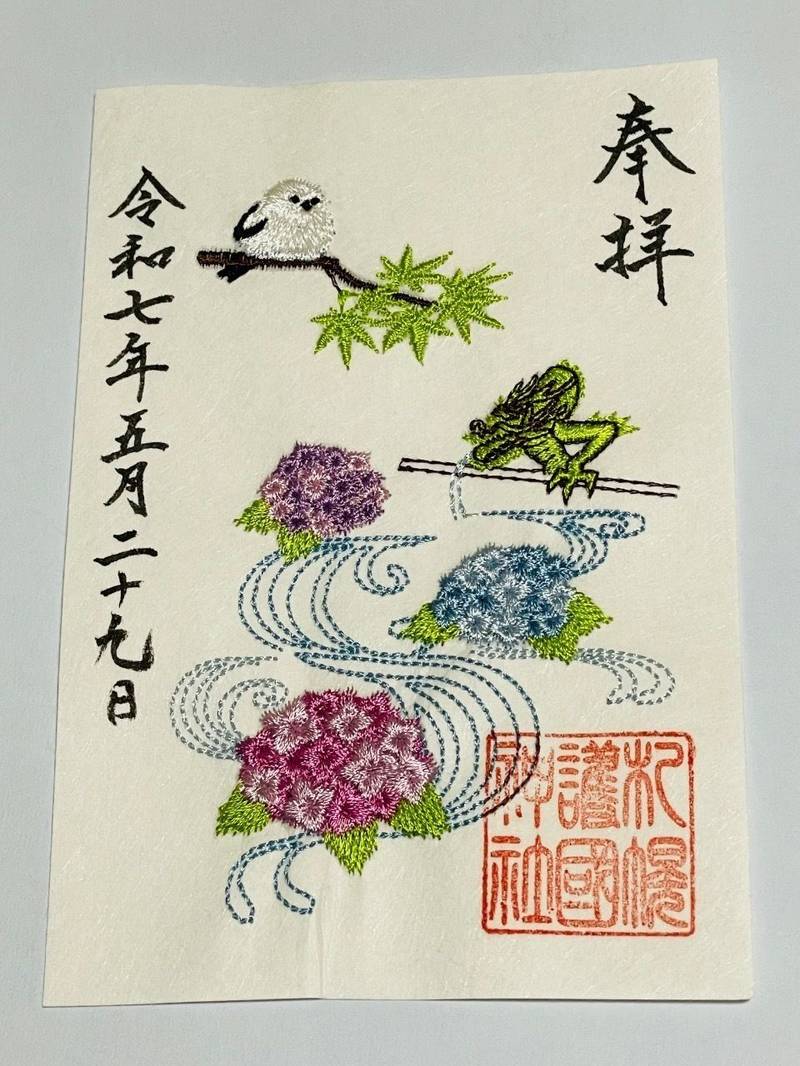 奉拝
札幌
護國
神社
令和七年五月二十九日